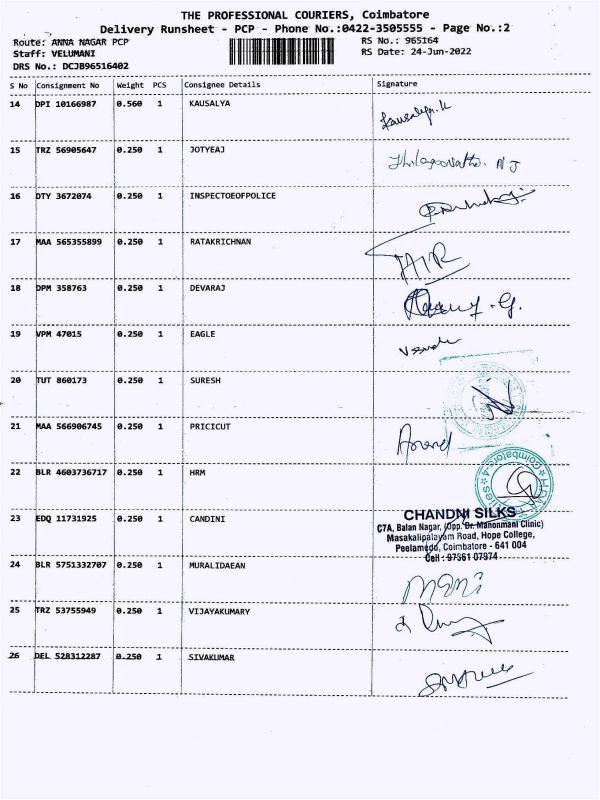 THE PROFESSIONAL COURIERS, Coimbatore
Delivery Runsheet - PCP - Phone No.:0422-3505555 - Page No.:2
Route: ANNA NAGAR PCP RS No.: 965164
Staff: VELUMANI RS Date: 24-Jun-2022
DRS No.: DCJB96516402
S No Consignment No Weight PCS Consignee Details Signature
14 DPI 10166987 0.560 1 KAUSALYA Kausalya.K
15 TRZ 56905647 0.250 1 JOTYEAJ
16 DTY 3672074 0.250 1 INSPECTOEOFPOLICE
17 MAA 565355899 0.250 1 RATAKRICHNAN
18 DPM 358763 0.250 1 DEVARAJ
19 VPM 47015 0.250 1 EAGLE
20 TUT 860173 0.250 1 SURESH
21 MAA 566906745 0.250 1 PRICICUT Anand
22 BLR 4603736717 0.250 1 HRM
23 EDQ 11731925 0.250 1 CANDINI
CHANDNI SILKS
C7A, Balan Nagar, (Opp. Dr. Manonmani Clinic)
Masakalipalayam Road, Hope College,
Peelamedu, Coimbatore - 641 004
Cell : 97861 07974
24 BLR 5751332707 0.250 1 MURALIDAEAN Mani
25 TRZ 53755949 0.250 1 VIJAYAKUMARY
26 DEL 528312287 0.250 1 SIVAKUMAR